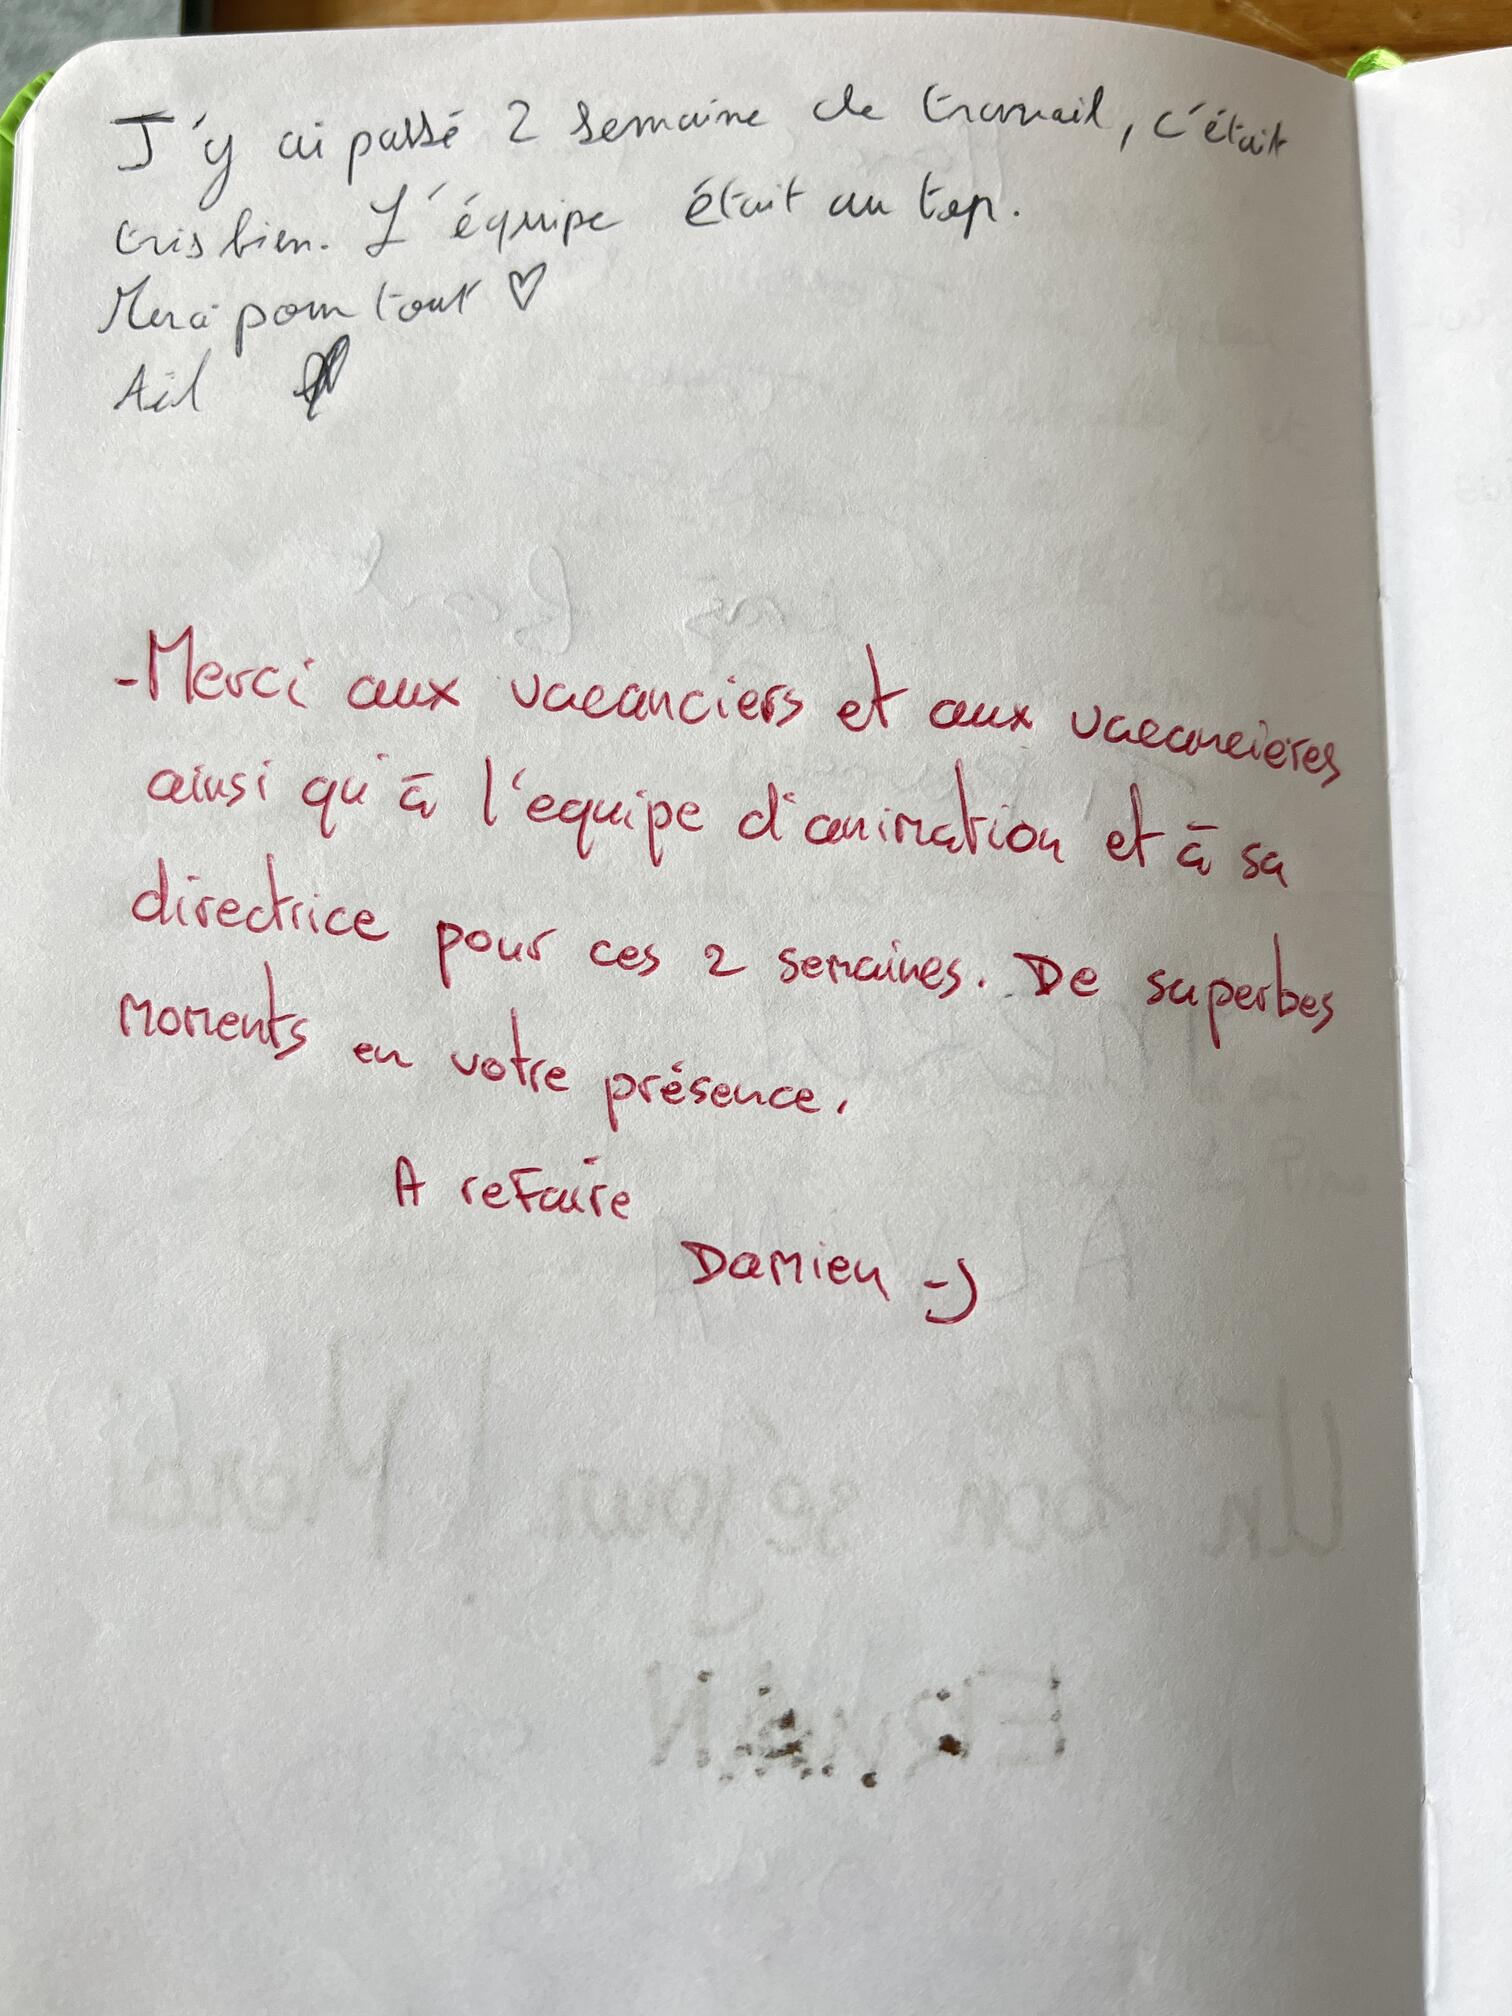 J'y ai passé 2 semaine de travail, c'était
très bien. L'équipe était au top.
Merci pour tout ♡
Ail
-Merci aux vacanciers et aux vacancières
ainsi qu'à l'equipe d'animation et à sa
directrice pour ces 2 semaines. De superbes
moments en votre présence.
A refaire
Damien -)
Un bon séjour ! Merci
ERWAN